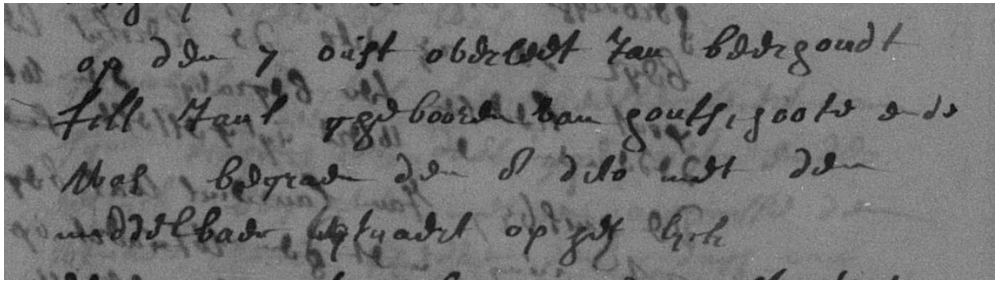 op den 7 oust overleet Jan beergondt
fill Jans gebooren van gouts, goote ende
was begraen den 8 dito met den
middelbaer uytvaert op het